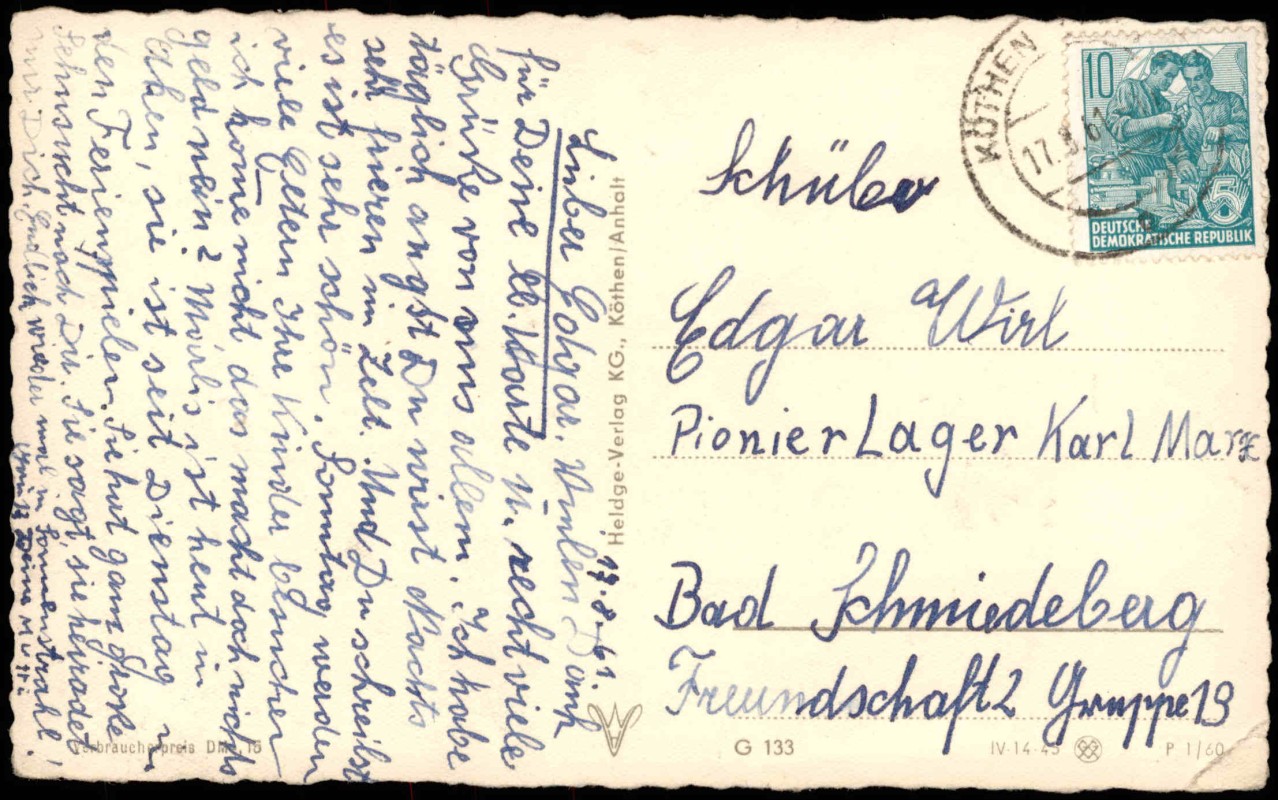 17.8.61.
Lieber Edgar. Vielen Dank
für Deine lb. Karte u. recht viele
Grüße von uns allem. Ich habe
täglich angst Du wirst Nachts
sehr frieren im Zelt. Und Du schreibst
es ist sehr schön. Sonntag werden
viele Eltern Ihre Kinder besuchen
ich kome nicht das macht doch nichts
geld nein? Marlis ist heut in
sie ist seit Dienstag in
den Ferienspielen. Sie hat ganz große
Sehnsucht nach Dir. Sie sagt, sie heiradet
nur Dich. Endlich wieder mal in Sonnenstrahl,
Deine Mutti
Heldge-Verlag KG., Köthen/Anhalt
Verbraucherpreis DM -,15
KÖTHEN
17.8.61
10
5
DEUTSCHE
DEMOKRATISCHE REPUBLIK
Schüler
Edgar Wirl
Pionier Lager Karl Marx
Bad Schmiedeberg
Freundschaft 2 Gruppe 19
G 133
IV-14-45
P 1/60